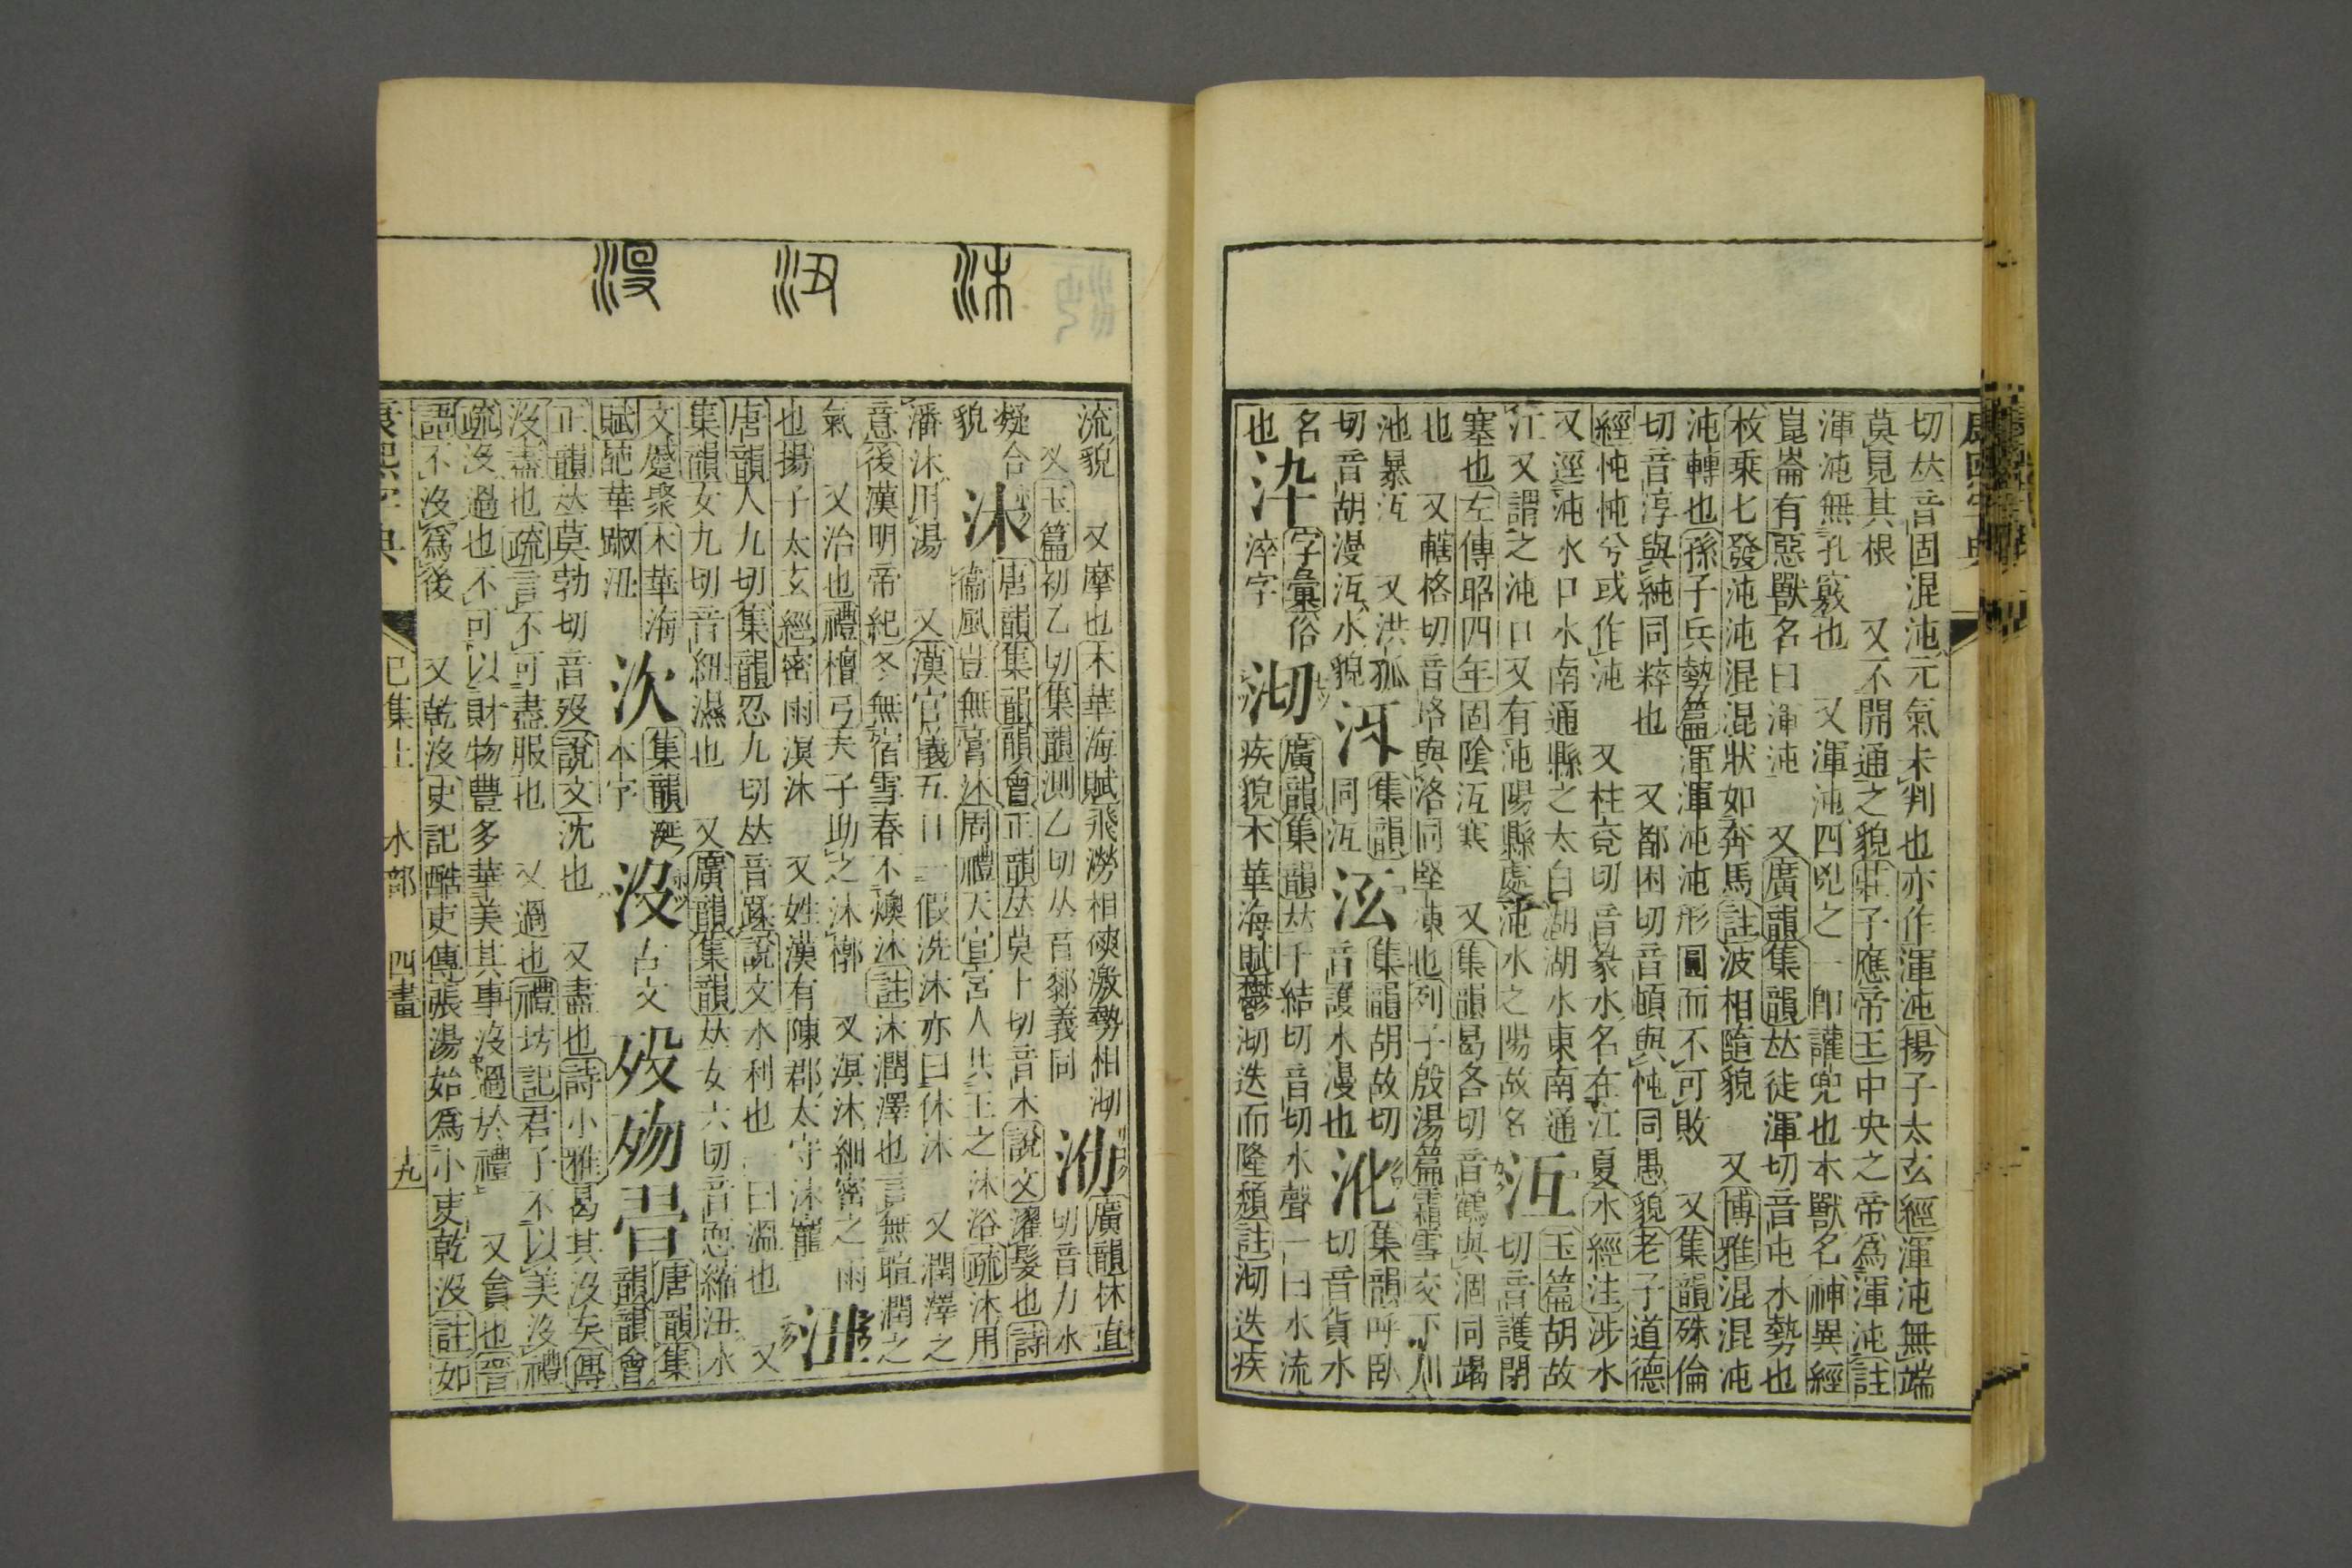 康熙字典
切𠀤音囤混沌元氣未判也亦作渾沌揚子太玄經渾沌無端
莫見其根 又不開通之貌莊子應帝王中央之帝爲渾沌註
渾沌無孔竅也 又渾沌四兇之一卽讙兜也本獸名神異經
崑崙有惡獸名曰渾沌 又廣韻集韻𠀤徒渾切音屯水勢也
枚乗七發沌沌混混狀如奔馬註波相隨貌 又博雅混混沌
沌轉也孫子兵勢篇渾渾沌沌形圓而不可敗 又集韻殊倫
切音淳與純同粹也 又都困切音頓與忳同愚貌老子道德
經忳忳兮或作沌 又柱兗切音篆水名在江夏水經注涉水
又逕沌水口水南通縣之太白湖湖水東南通
江又謂之沌口又有沌陽縣處沌水之陽故名
沍 玉篇胡故
切音護閉
塞也左傳昭四年固陰沍寒 又集韻曷各切音鶴與涸同竭
也 又轄格切音垎與洛同堅凍也列子殷湯篇霜雪交下川
池暴沍 又洪孤
切音胡漫沍水貌
冴 集韻
同沍
集韻胡故切
音護水漫也
集韻呼臥
切音貨水
名
也
㳃 字彙俗
淬字
沏 廣韻集韻𠀤千結切音切水聲一曰水流
疾貌木華海賦鬱沏迭而隆頹註沏迭疾
沐
沑
沒
流貌 又摩也木華海賦飛澇相磢激勢相沏
又玉篇初乙切集韻測乙切𠀤音㓼義同
泐 廣韻林直
切音力水
凝合
貌
沐 唐韻集韻韻會正韻𠀤莫卜切音木說文濯髮也詩
衞風豈無膏沐周禮天官宮人共王之沐浴疏沐用
潘沐用湯 又漢官儀五日一假洗沐亦曰休沐 又潤澤之
意後漢明帝紀冬無宿雪春不燠沐註沐潤澤也言無暄潤之
氣 又治也禮檀弓夫子助之沐槨 又溟沐細密之雨
也揚子太玄經密雨溟沐 又姓漢有陳郡太守沐寵
沑
唐韻人九切集韻忍九切𠀤音蹂說文水利也一曰溫也 又
集韻女九切音紐濕也 又廣韻集韻𠀤女六切音恧縮沑水
文蹙聚木華海
賦葩華踧沑
次 集韻㳄
本字
沒 古文 歿 歾 㬰 唐韻集
韻韻會
正韻𠀤莫勃切音歿說文沈也 又盡也詩小雅曷其沒矣傳
沒盡也疏言不可盡服也 又過也禮坊記君子不以美沒禮
疏沒過也不可以財物豐多華美其事沒過於禮 又貪也晉
語不沒爲後 又乾沒史記酷吏傳張湯始爲小吏乾沒註如
康熙字典 巳集上 水部 四畫 九